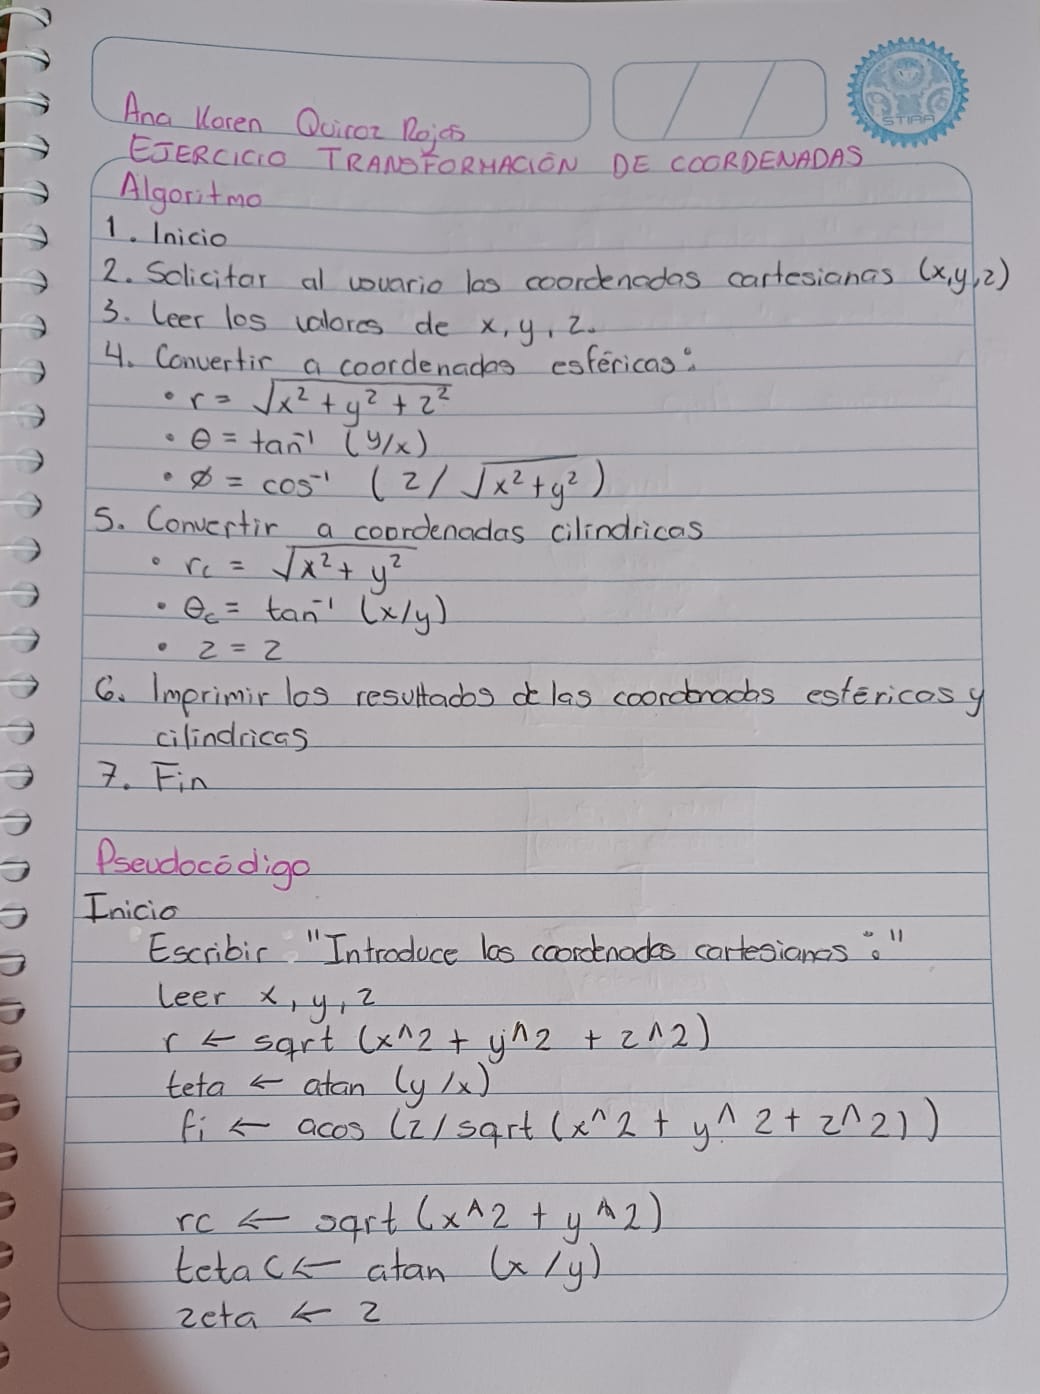 Ana Karen Quiroz Rojas
STIAA
EJERCICIO TRANSFORMACIÓN DE COORDENADAS
Algoritmo
1. Inicio
2. Solicitar al usuario las coordenadas cartesianas (x,y,z)
3. Leer los valores de x, y, z.
4. Convertir a coordenadas esféricas:
• r = √x² + y² + z²
• θ = tan⁻¹ (y/x)
• ϕ = cos⁻¹ (z/√x²+y²)
5. Convertir a coordenadas cilíndricas
• rc = √x² + y²
• θc = tan⁻¹ (x/y)
• z = z
6. Imprimir los resultados de las coordenadas esféricas y
cilíndricas
7. Fin
Pseudocódigo
Inicio
Escribir "Introduce las coordenadas cartesianas:"
Leer x, y, z
r ← sqrt (x^2 + y^2 + z^2)
teta ← atan (y/x)
fi ← acos (z/sqrt(x^2 + y^2 + z^2))
rc ← sqrt(x^2 + y^2)
teta c ← atan (x/y)
zeta ← z